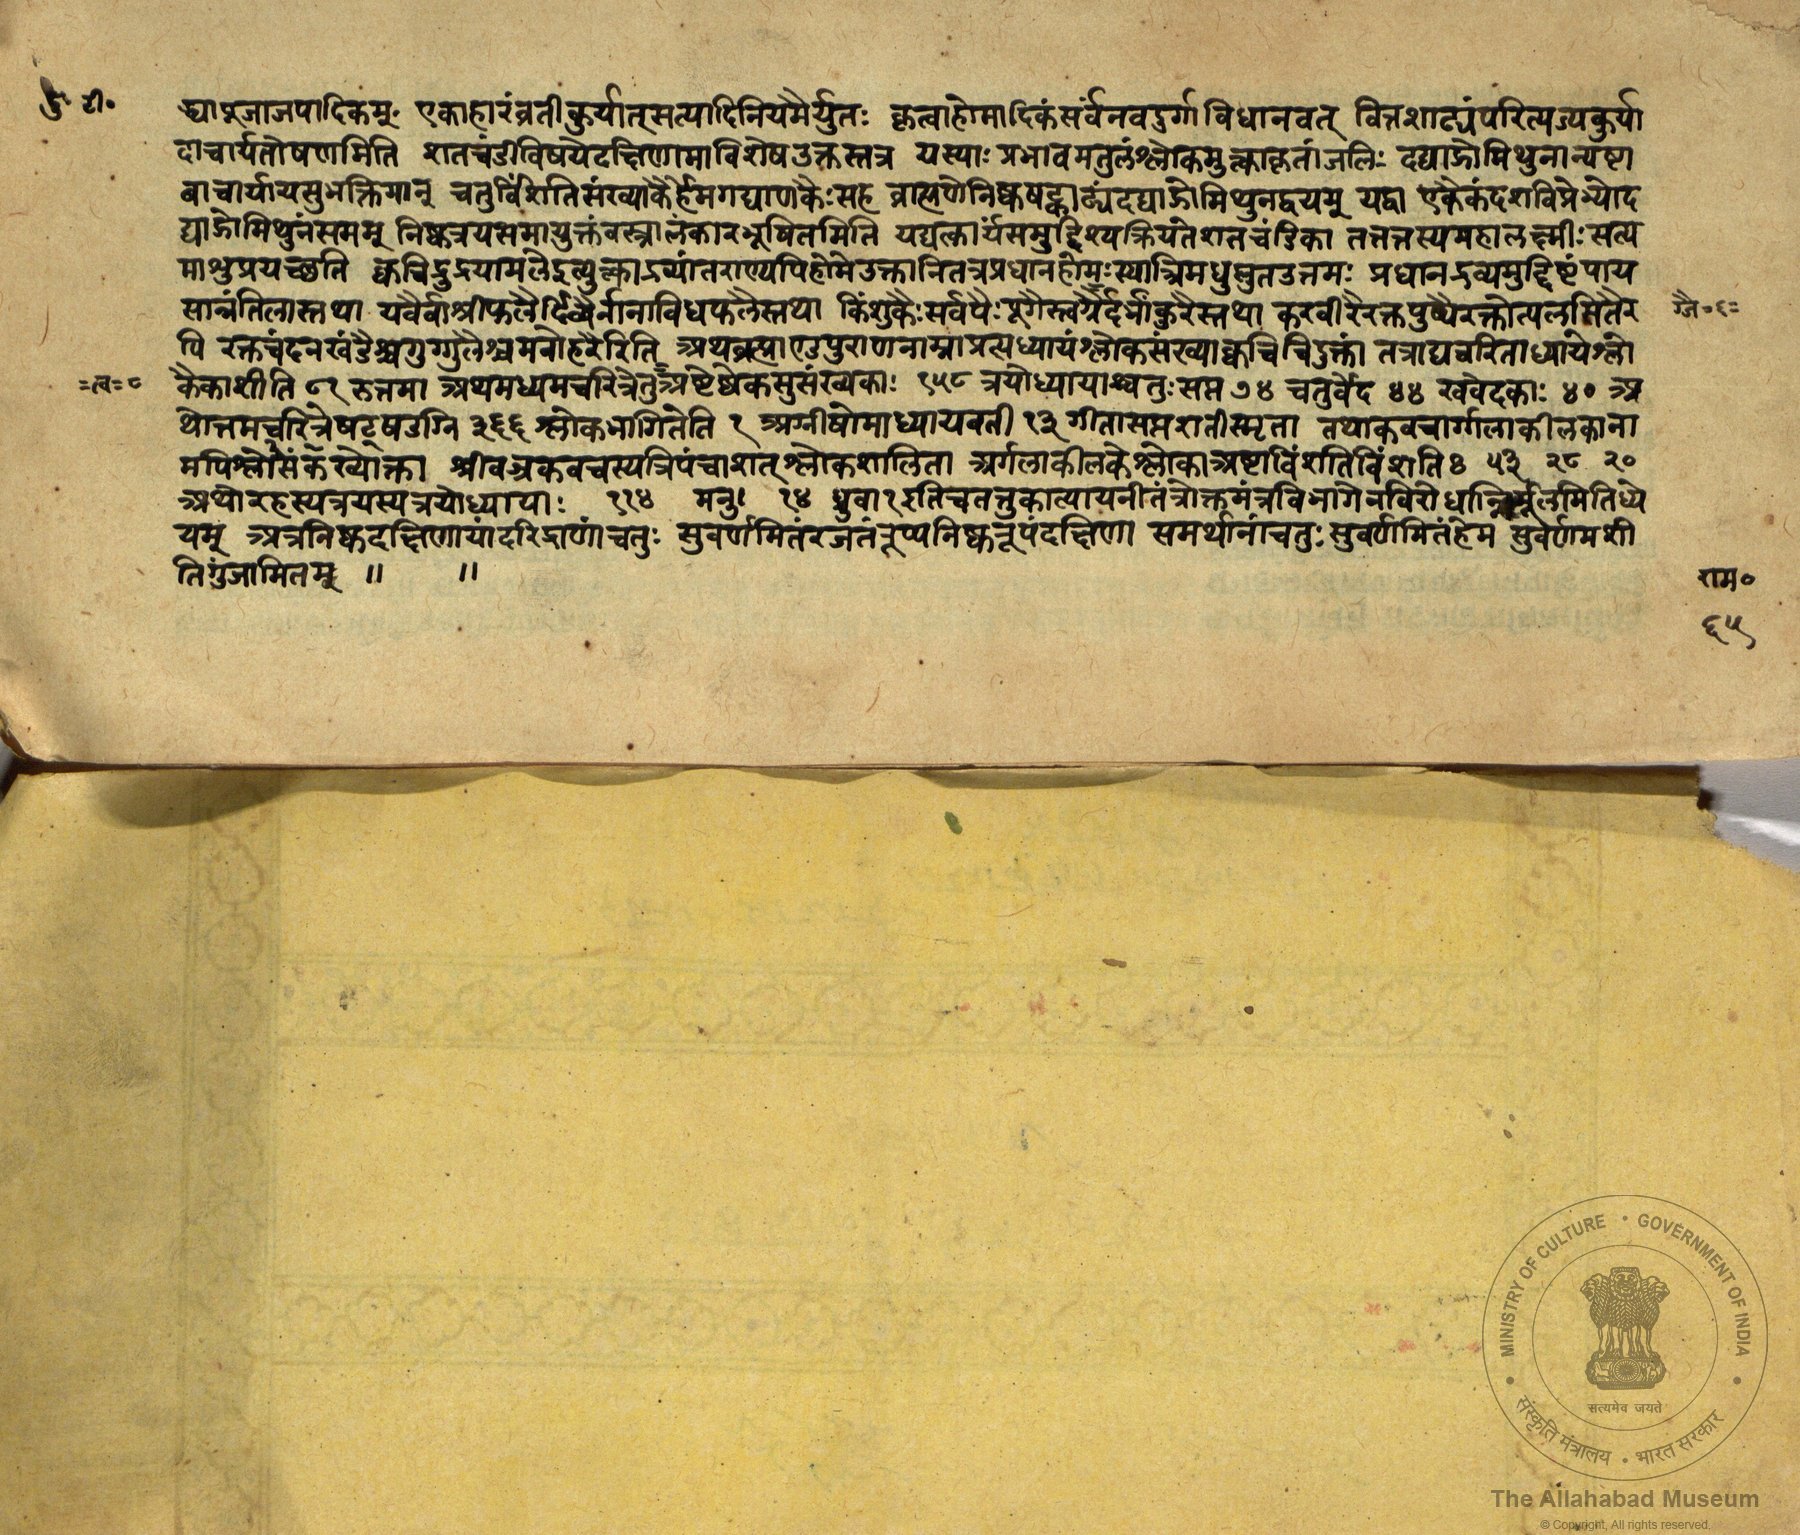 दु॰ टी॰
ड्यापूजाजपादिकम् एकाहारंव्रतीकुर्यात्सत्यादिनियमैर्युतः कृत्वाहोमादिकंसर्वंनवदुर्गाविधानवत् वित्तशाठ्यंपरित्यज्यकुर्या
दाचार्यतोषणमिति शतचंडीविषयेदक्षिणामाविशेषउक्तस्तत्र यस्याः प्रभावमतुलंश्लोकमुक्त्वाकृतांजलिः दद्याद्गोमिथुनान्यष्टा
वाचार्यायसुभक्तिमान् चतुर्विंशतिसंख्याकैर्हेमगद्याणकैःसह ब्राह्मणेनिष्कषट्काढ्यंदद्याद्गोमिथुनद्वयम् यद्वा एकैकंदशविप्रेभ्योद
द्याद्गोमिथुनंसमम् निष्कत्रयसमायुक्तंवस्त्रालंकारभूषितमिति यद्यत्कार्यंसमुद्दिश्यक्रियतेशतचंडिका तत्तत्तस्यमहालक्ष्मीःसत्य
माशुप्रयच्छति क्वचिद्रुद्रयामलेइत्युक्त्वाद्रव्यांतराण्यपिहोमेउक्तानितत्रप्रधानहोमःस्यात्त्रिमधुप्लुतउत्तमः प्रधानद्रव्यमुद्दिष्टंपाय
सान्नंतिलास्तथा यवैर्वाश्रीफलैर्दिव्यैर्नानाविधफलैस्तथा किंशुकैःसर्षपैःपूगैस्त्वग्रैर्दर्भांकुरैस्तथा करवीरैरक्तपुष्पैरक्तोत्पलसितैर
पि रक्तचंदनखंडैश्चगुग्गुलैश्चमनोहरैरिति अथब्रह्माण्डपुराणनाम्नाप्रत्यध्यायंश्लोकसंख्याक्वचिचिदुक्तां तत्राद्यचरिताध्यायेश्लो
कैकाशीति ८१ रुत्तमा अथमध्यमचरित्रेतुअष्टेष्वेकसुसंख्यकाः १५८ त्रयोध्यायाश्चतुःसप्त ७४ चतुर्वेद ४४ खवेदकाः ४० अ
थोत्तमचरित्रेषट्षडग्नि ३६६ श्लोकभागितेति १ अग्नीषोमाध्यायवती १३ गीतासप्तशतीस्मृता तथाकवचार्गालाकीलकाना
मपिश्लोसंकख्योक्ता श्रीवज्रकवचस्यत्रिपंचाशत्श्लोकशालिता अर्गलाकीलकेश्लोकाअष्टाविंशतिविंशति४ ५३ २८ २०
अथोरहस्यत्रयस्यत्रयोध्यायाः ११४ मनु। १४ ध्रुवा१इतिचतत्तुकात्यायनीतंत्रोक्तमंत्रविभागेनविरोधान्निर्मूलमितिध्ये
यम् अत्रनिष्कदक्षिणायांदरिद्राणांचतुः सुवर्णमितंरजतंरूप्यनिष्करूपंदक्षिणा समर्थानांचतुःसुवर्णमितंहेम सुवर्णमशी
तिगुंजामितम् ॥ ॥
राम॰
६५
MINISTRY OF CULTURE • GOVERNMENT OF INDIA
सत्यमेव जयते
संस्कृति मंत्रालय • भारत सरकार
The Allahabad Museum
© Copyright, All rights reserved.